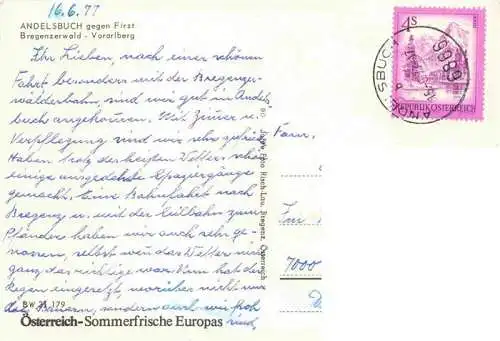 16.6.77
ANDELSBUCH gegen First
Bregenzerwald - Vorarlberg
Ihr Lieben, nach einer schönen
Fahrt besonders mit der Bregenzer-
wälderbahn, sind wir gut in Andels-
buch angekommen. Mit Zimmer u.
Verpflegung sind wir sehr zufrieden
Haben trotz des heißen Wetters, schon
einige ausgedehnte Spaziergänge
gemacht. Eine Bahnfahrt nach
Bregenz u. mit der Seilbahn zum
Pfänder haben wir auch sehr ge-
nossen, selbst wenn das Wetter nicht
ganz das richtige war. Nun hat der
Regen eingesetzt, worüber nicht nur
die Bauern, sondern auch wir froh
sind,
BW 21 179
Österreich-Sommerfrische Europas
Risch-Lau, Bregenz, Österreich
4S
REPUBLIK ÖSTERREICH
6866
Fam.
7000